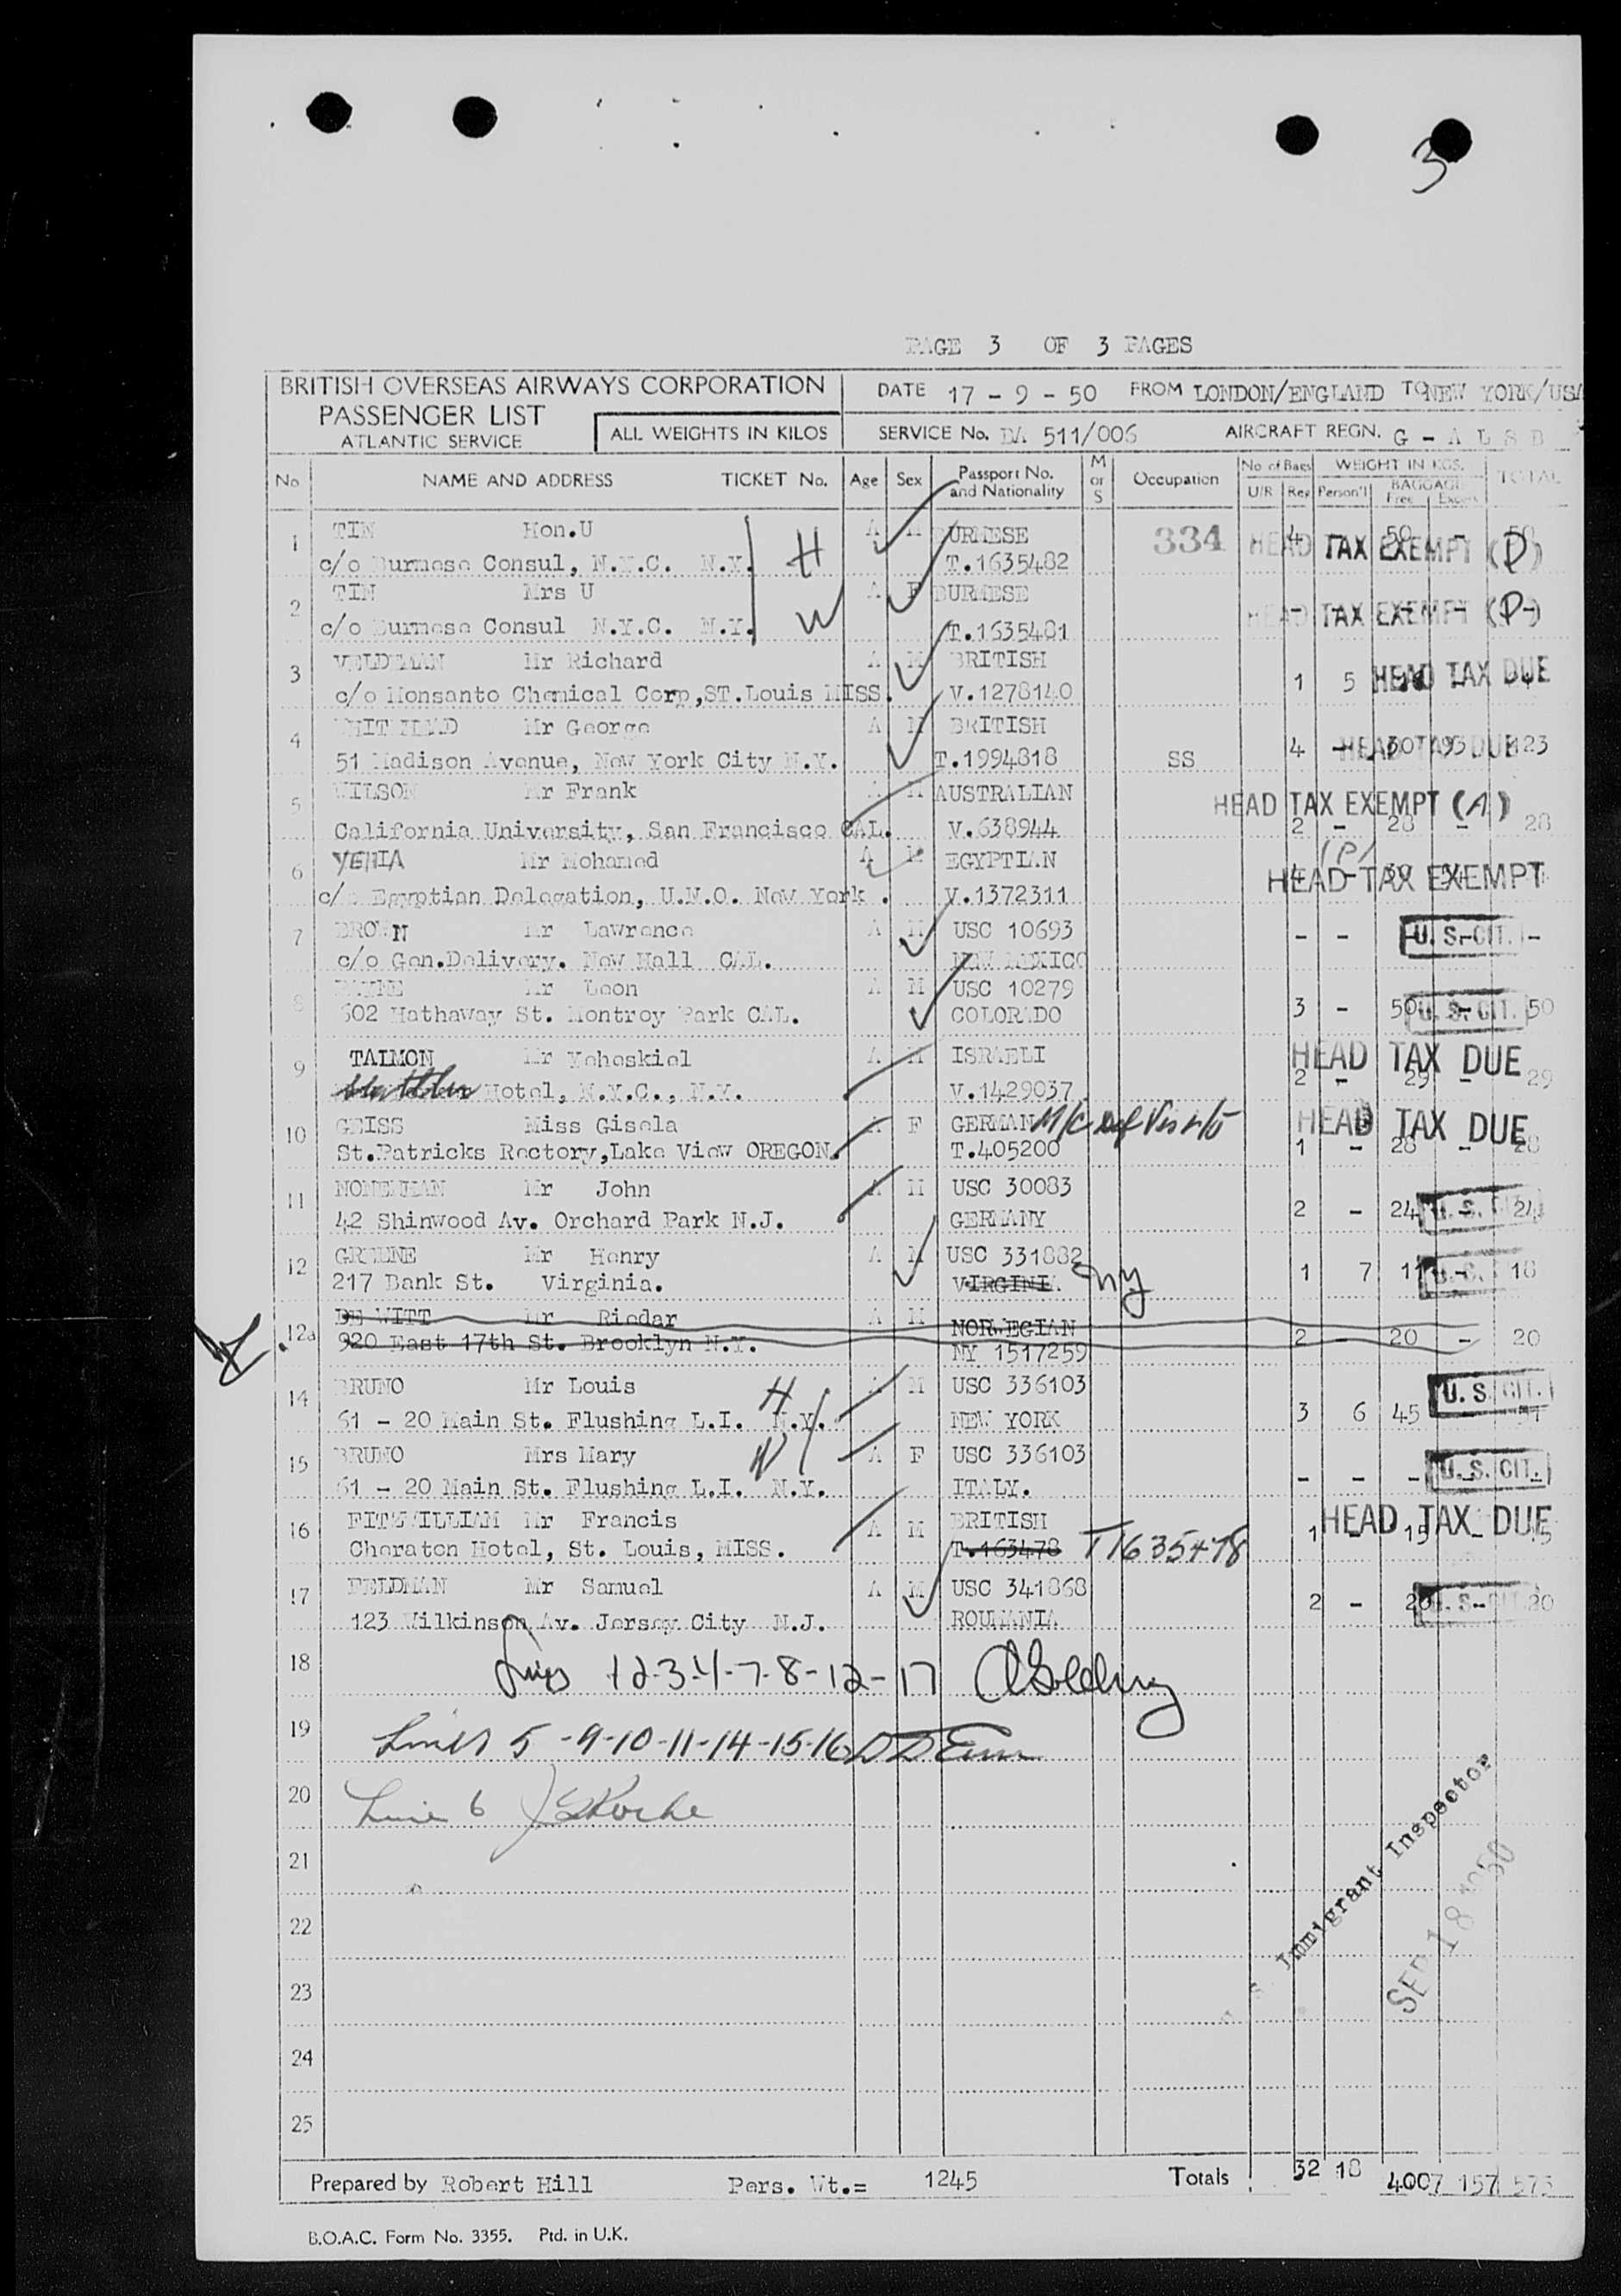 3
PAGE 3 OF 3 PAGES
BRITISH OVERSEAS AIRWAYS CORPORATION
PASSENGER LIST
ATLANTIC SERVICE
ALL WEIGHTS IN KILOS
DATE 17 - 9 - 50 FROM LONDON/ENGLAND TO NEW YORK/USA
SERVICE No. BA 511/006 AIRCRAFT REGN. G - A L S B
No NAME AND ADDRESS TICKET No. Age Sex Passport No. and Nationality M or S Occupation No of Bags U/R Reg WEIGHT IN KGS. Person'l BAGGAGE Free Excess TOTAL
1 TIN Hon.U A M BURMESE 334 4 - 50 - 50 HEAD TAX EXEMPT (D)
c/o Burmese Consul, N.Y.C. N.Y. H T.1635482
2 TIN Mrs U A F BURMESE - - - - - HEAD TAX EXEMPT (D)
c/o Burmese Consul N.Y.C. N.Y. W T.1635481
3 VELDEMAN Mr Richard A M BRITISH 1 5 HEAD TAX DUE
c/o Monsanto Chemical Corp,ST.Louis MISS. V.1278140
4 WHITEHEAD Mr George A M BRITISH
51 Madison Avenue, New York City N.Y. T.1994818 SS 4 - 30 93 123 HEAD TAX DUE
5 WILSON Mr Frank A M AUSTRALIAN HEAD TAX EXEMPT (A)
California University, San Francisco CAL. V.638944 2 - 28 - 28
6 YEHIA Mr Mohamed A M EGYPTIAN (P) HEAD TAX EXEMPT
c/o Egyptian Delegation, U.N.O. New York . V.1372311
7 BROWN Mr Lawrence A M USC 10693 - - U. S. CIT. -
c/o Gen.Delivery. New Hall CAL. NEW MEXICO
8 Mr Leon A M USC 10279
502 Hathaway St. Montroy Park CAL. COLORADO 3 - 50 - 50 U. S. CIT.
9 TALMON Mr Yeheskiel A M ISRAELI HEAD TAX DUE
Hotel, N.Y.C., N.Y. V.1429037 2 - 29 - 29
10 GEISS Miss Gisela A F GERMAN HEAD TAX DUE
St.Patricks Rectory,Lake View OREGON. T.405200 1 - 28 - 28
11 NONENMAN Mr John A M USC 30083
42 Shinwood Av. Orchard Park N.J. GERMANY 2 - 24 - 24 U. S. CIT.
12 GREENE Mr Henry A M USC 331882
217 Bank St. Virginia. VIRGINIA NY 1 7 11 - 18 U. S. CIT.
12a DE WITT Mr Riedar A M NORWEGIAN
920 East 17th St. Brooklyn N.Y. NY 1517259 2 - 20 - 20
14 BRUNO Mr Louis H A M USC 336103 U. S. CIT.
61 - 20 Main St. Flushing L.I. N.Y. NEW YORK 3 6 45
15 BRUNO Mrs Mary W A F USC 336103
61 - 20 Main St. Flushing L.I. N.Y. ITALY. - - - - U. S. CIT.
16 FITZWILLIAM Mr Francis A M BRITISH HEAD TAX DUE
Cheraton Hotel, St. Louis, MISS. T.163478 T1635478 1 - 15 - 15
17 FELDMAN Mr Samuel A M USC 341868
123 Wilkinson Av. Jersey City N.J. ROUMANIA 2 - 20 - 20 U. S. CIT.
18 Lines 1-2-3-4-7-8-12-17
19 Lines 5 -9-10-11-14-15-16
20 Line 6
21
22
23
24
25
Immigrant Inspector
SEP 18 1950
Prepared by Robert Hill Pers. Wt.= 1245 Totals 32 18 157 573
B.O.A.C. Form No. 3355. Ptd. in U.K.